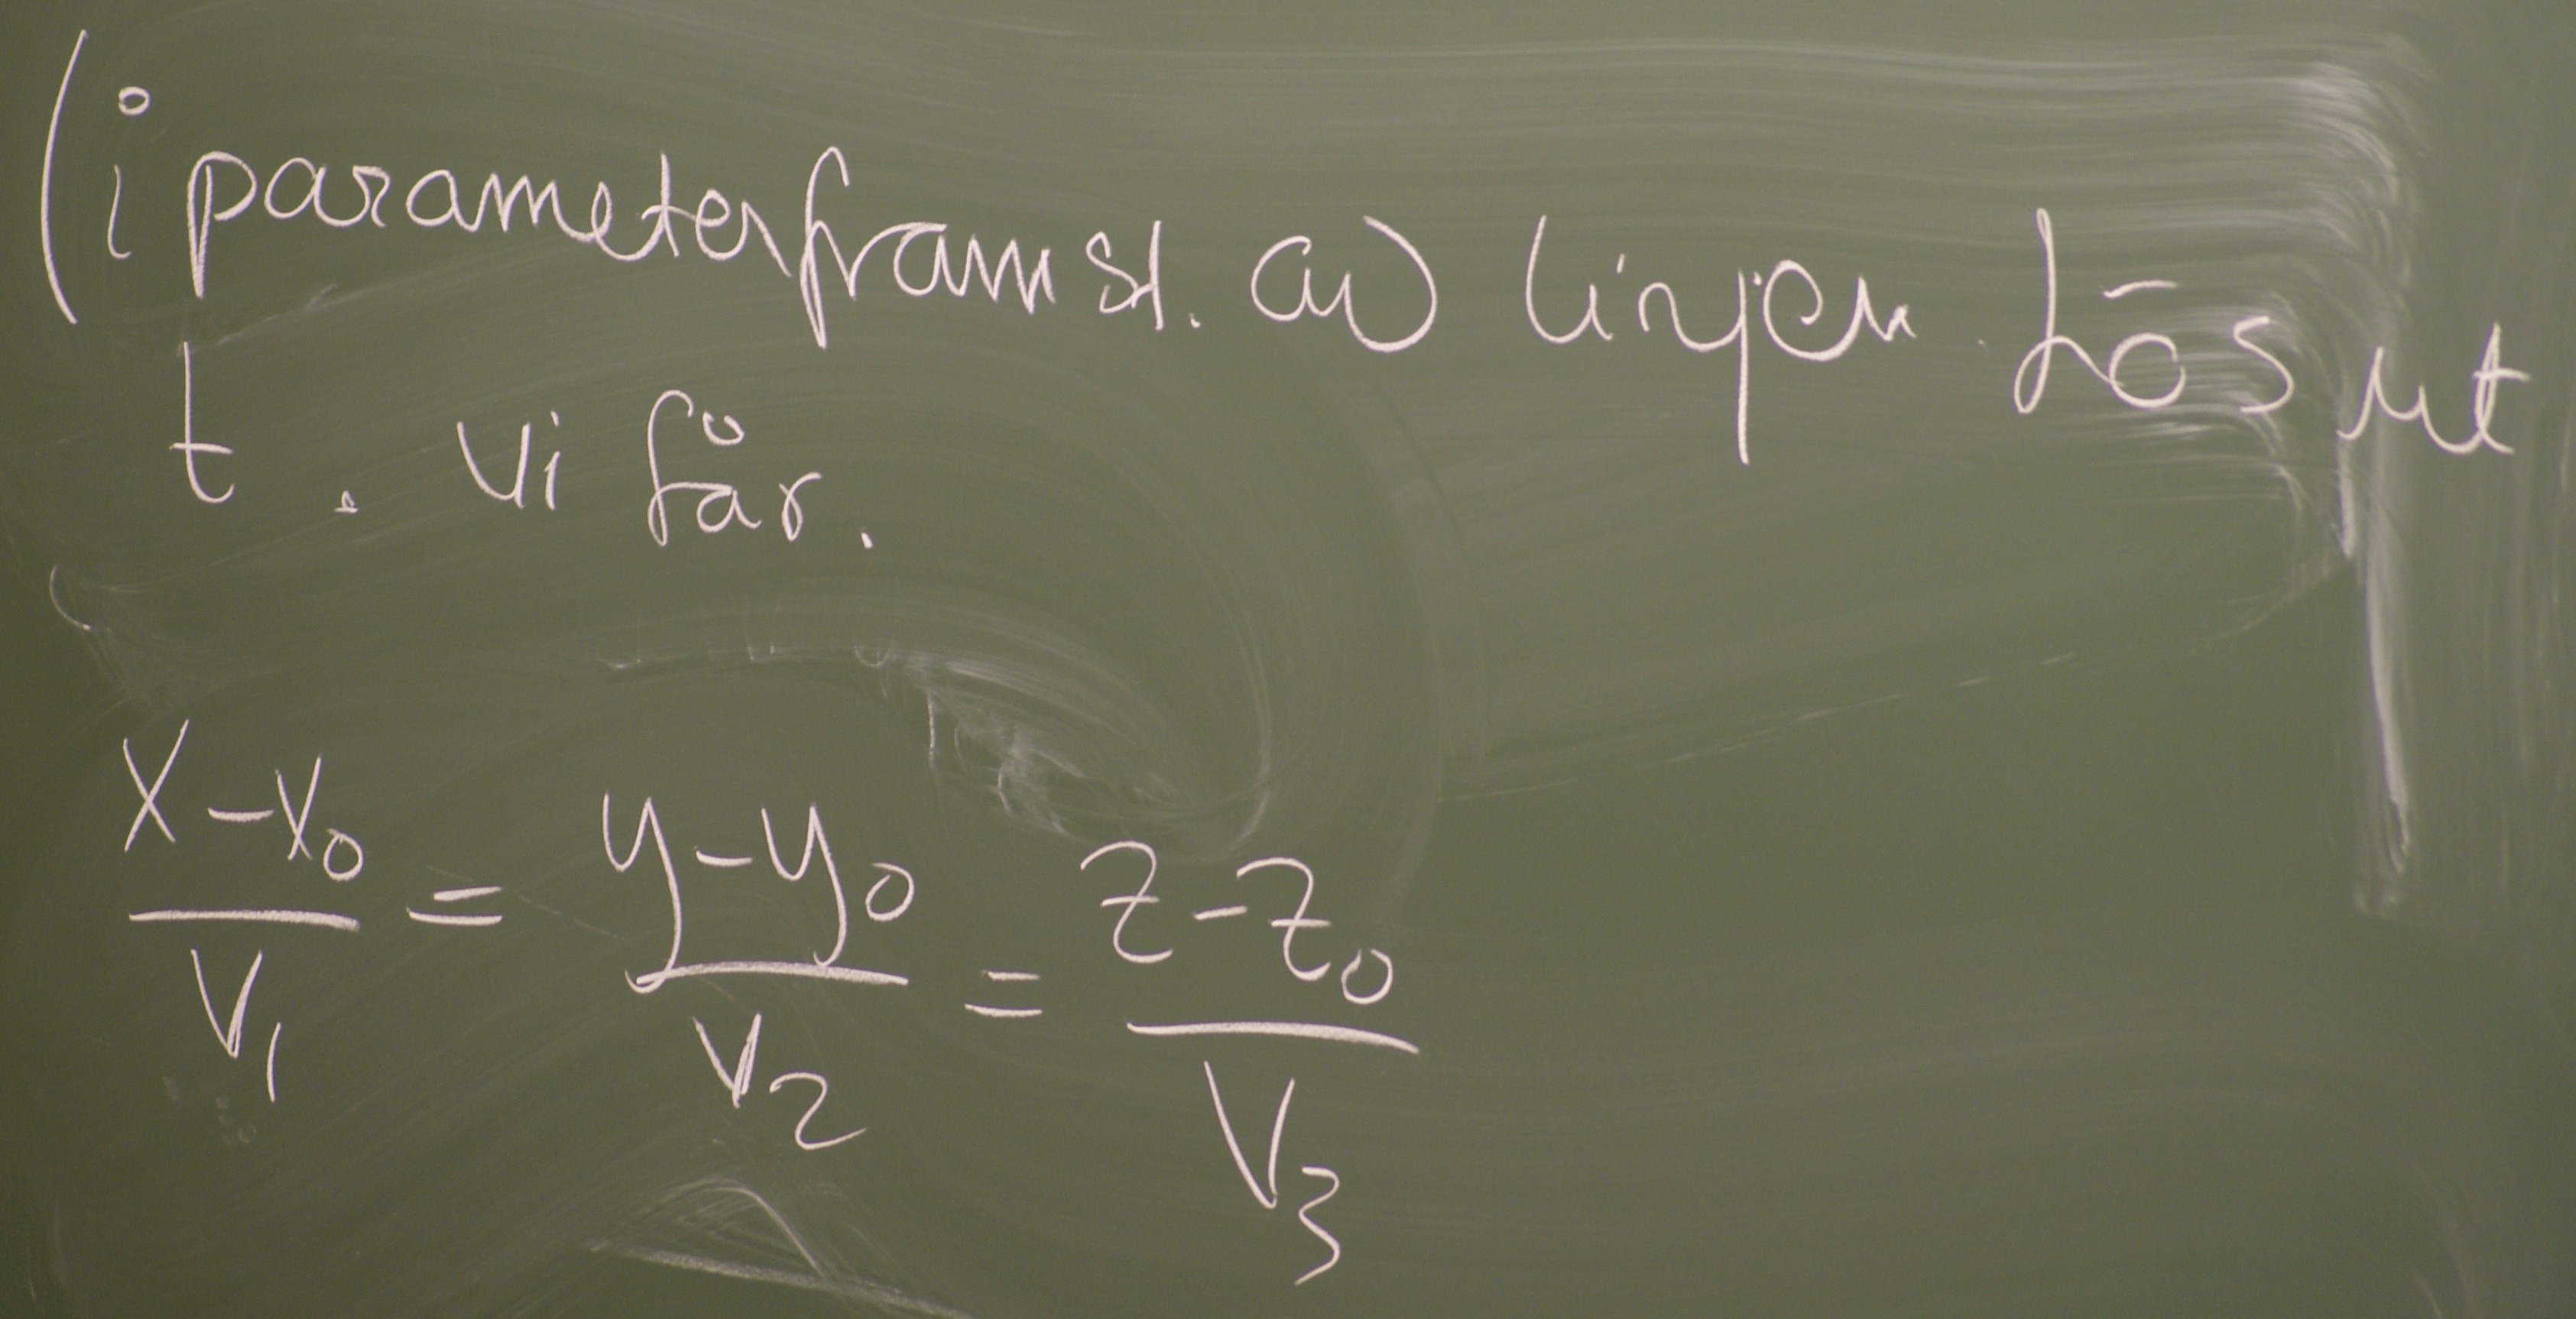 (i parameterframst. av linjen. Lös ut
t. Vi får.
x-x₀/v₁ = y-y₀/v₂ = z-z₀/v₃